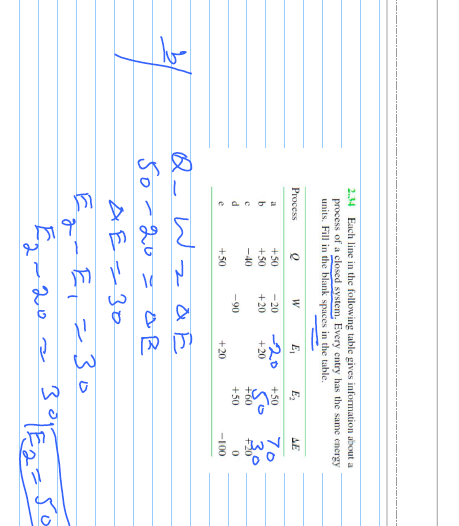 2.34 Each line in the following table gives information about a
process of a closed system. Every entry has the same energy
units. Fill in the blank spaces in the table.
Process Q W E₁ E₂ ΔE
a +50 −20 -20 +50 70
b +50 +20 +20 50 30
c −40 +60 +20
d −90 +50 0
e +50 +20 −100
b/
Q - W = ΔE
50 - 20 = ΔE
ΔE = 30
E₂ - E₁ = 30
E₂ - 20 = 30 | E₂ = 50